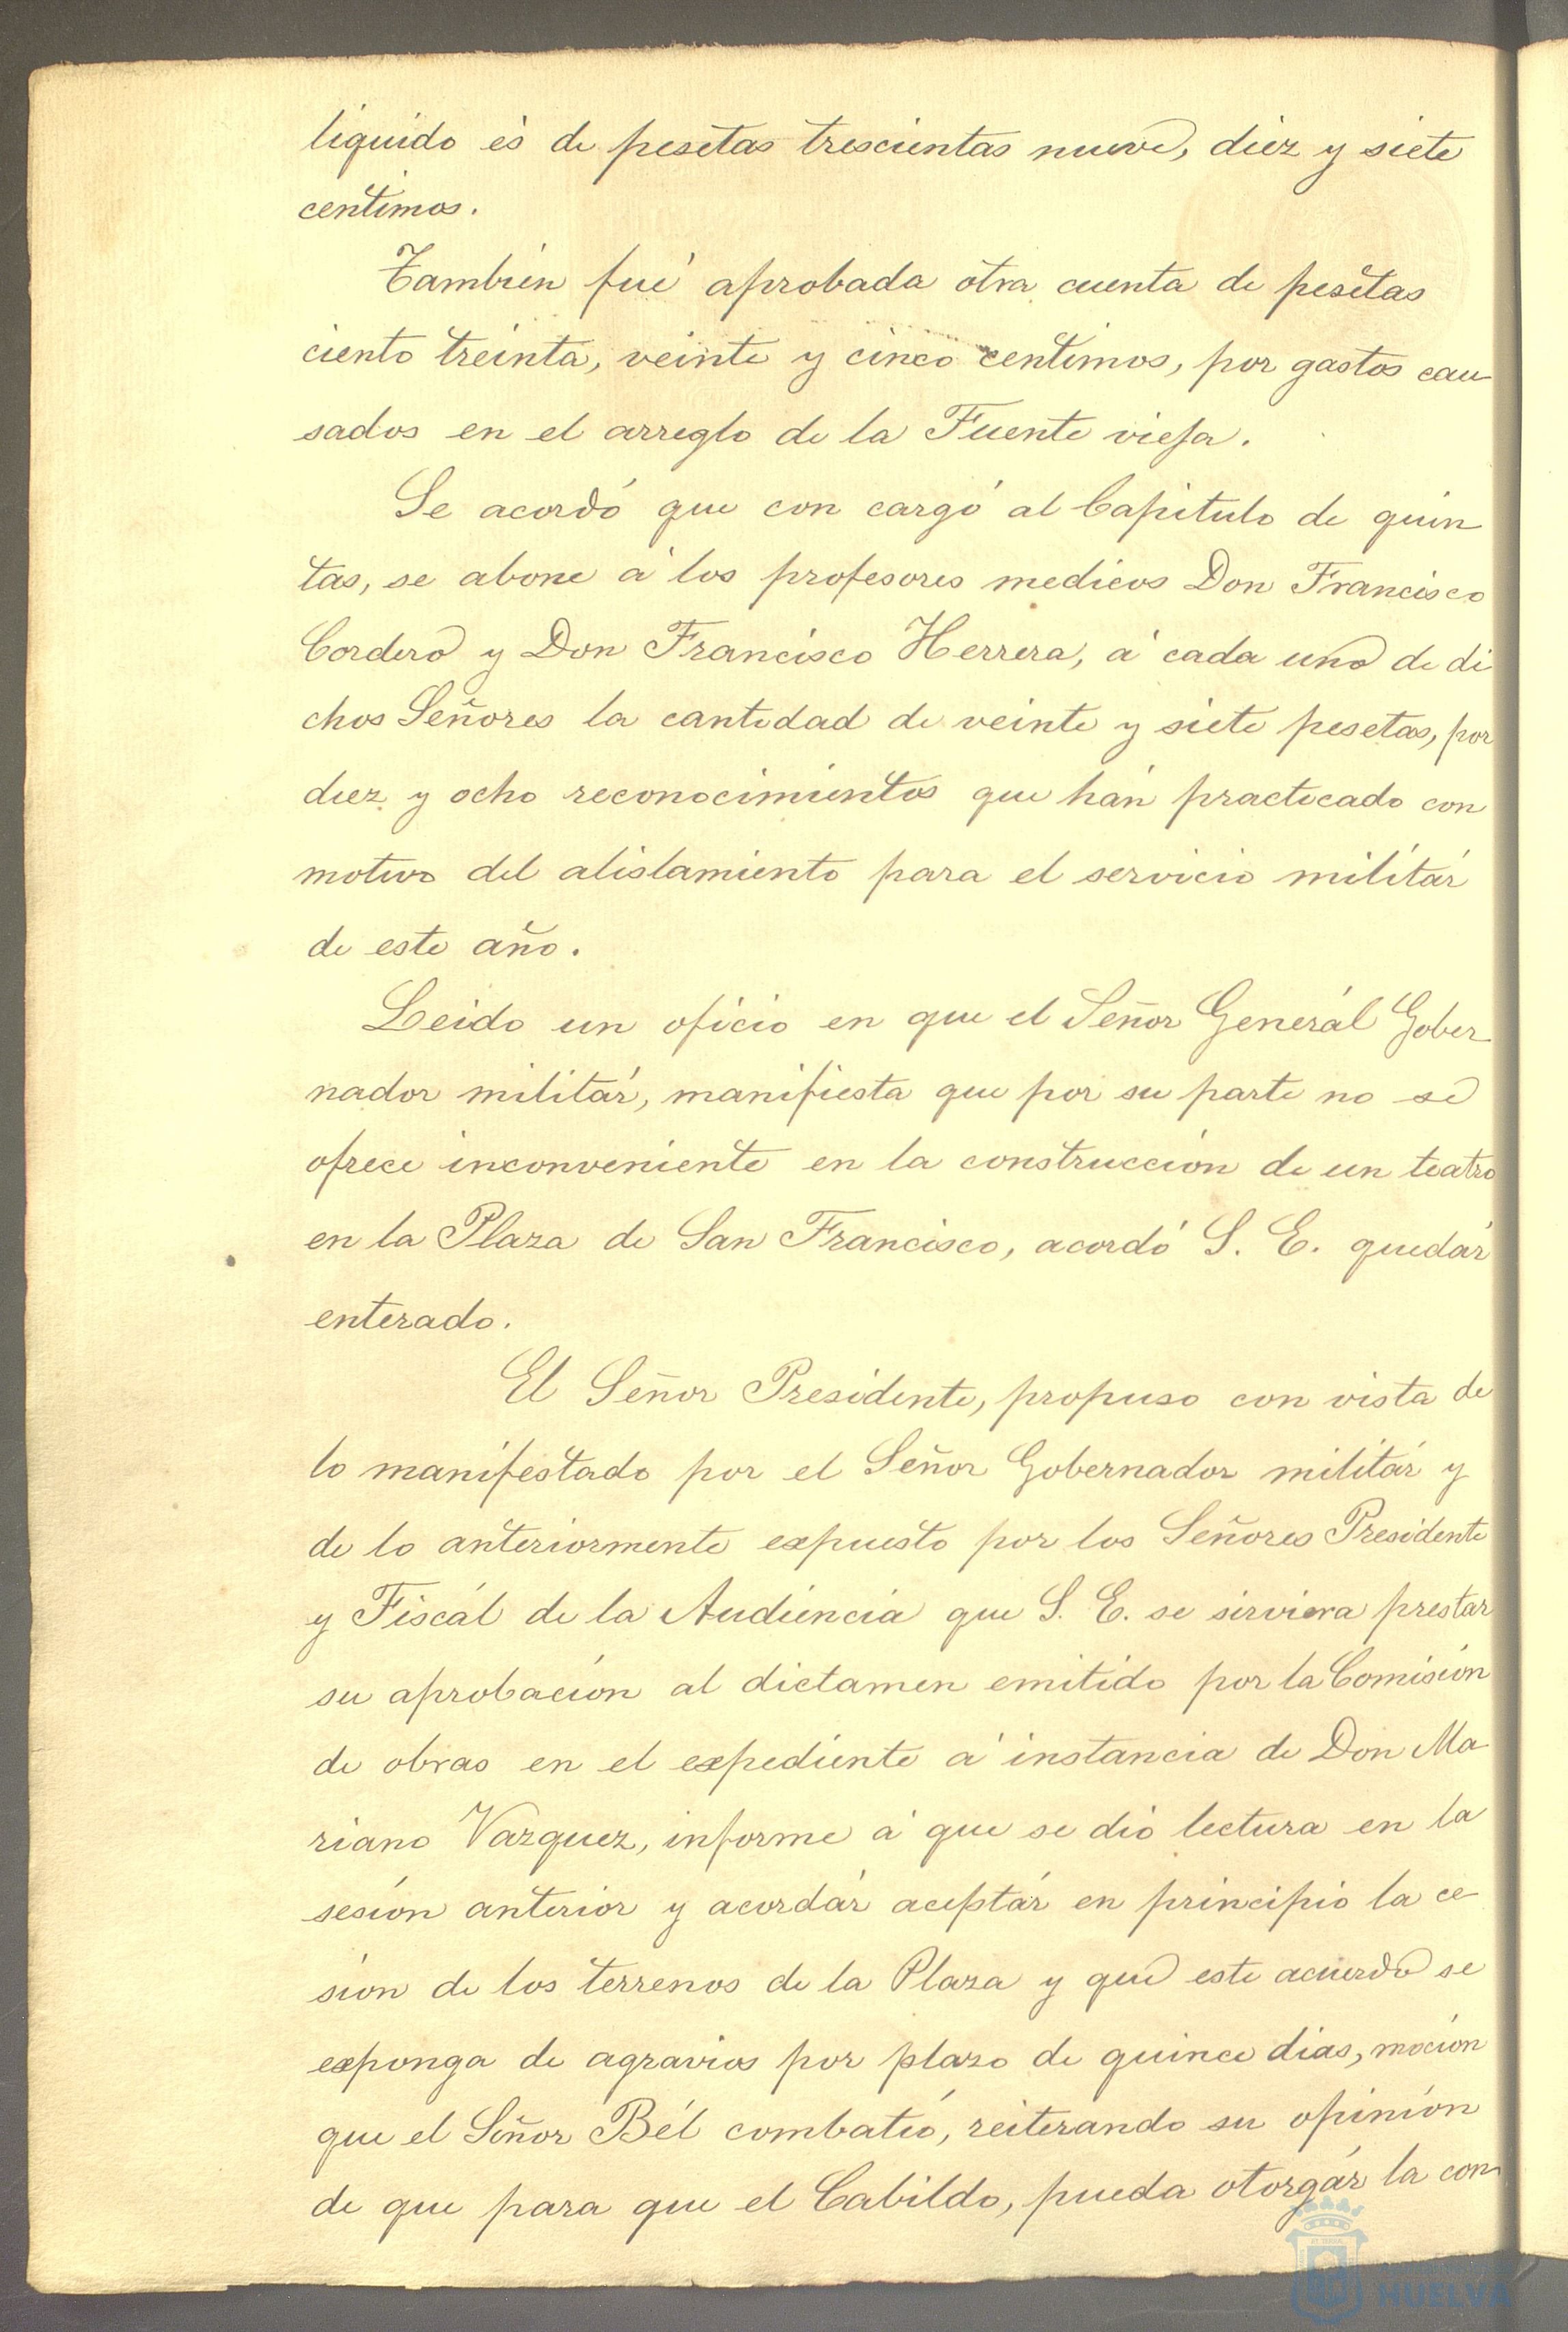 liquido és de pesetas trescientas nueve, diez y siete
centimos.
Tambien fué aprobada otra cuenta de pesetas
ciento treinta, veinte y cinco centimos, por gastos cau
sados en el arreglo de la Fuente vieja.
Se acordó que con cargó al Capitulo de quin
tas, se abone á los profesores medicos Don Francisco
Cordero y Don Francisco Herrera, á cada uno de di
chos Señores la cantidad de veinte y siete pesetas, por
diez y ocho reconocimientos que hán practicado con
motivo del alislamiento para el servicio militár
de este año.
Leido un oficio en que el Señor Generál Gober
nador militár, manifiesta que por su parte no se
ofrece inconveniente en la construccion de un teatro
en la Plaza de San Francisco, acordó S. E. quedár
enterado.
El Señor Presidente, propuso con vista de
lo manifestado por el Señor Gobernador militár y
de lo anteriormente expuesto por los Señores Presidente
y Fiscál de la Audiencia que S. E. se sirviera prestar
su aprobación al dictamen emitido por la Comisión
de obras en el expediente á instancia de Don Ma
riano Vazquez, informe á que se dió lectura en la
sesión anterior y acordár aceptár en principio la ce
sion de los terrenos de la Plaza y que este acuerdo se
exponga de agravios por plazo de quince dias, moción
que el Señor Bél combatió, reiterando su opinión
de que para que el Cabildo, pueda otorgár la con
HUELVA